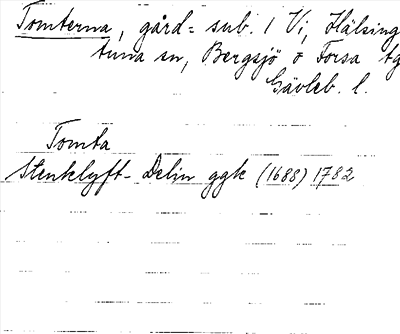 Tomterna, gård = sub. 1 Vi, Hälsing
tuna sn, Bergsjö o Forsa tg
Gävleb. l.
Tomta
Stenklyft- Delin ggk (1688) 1782